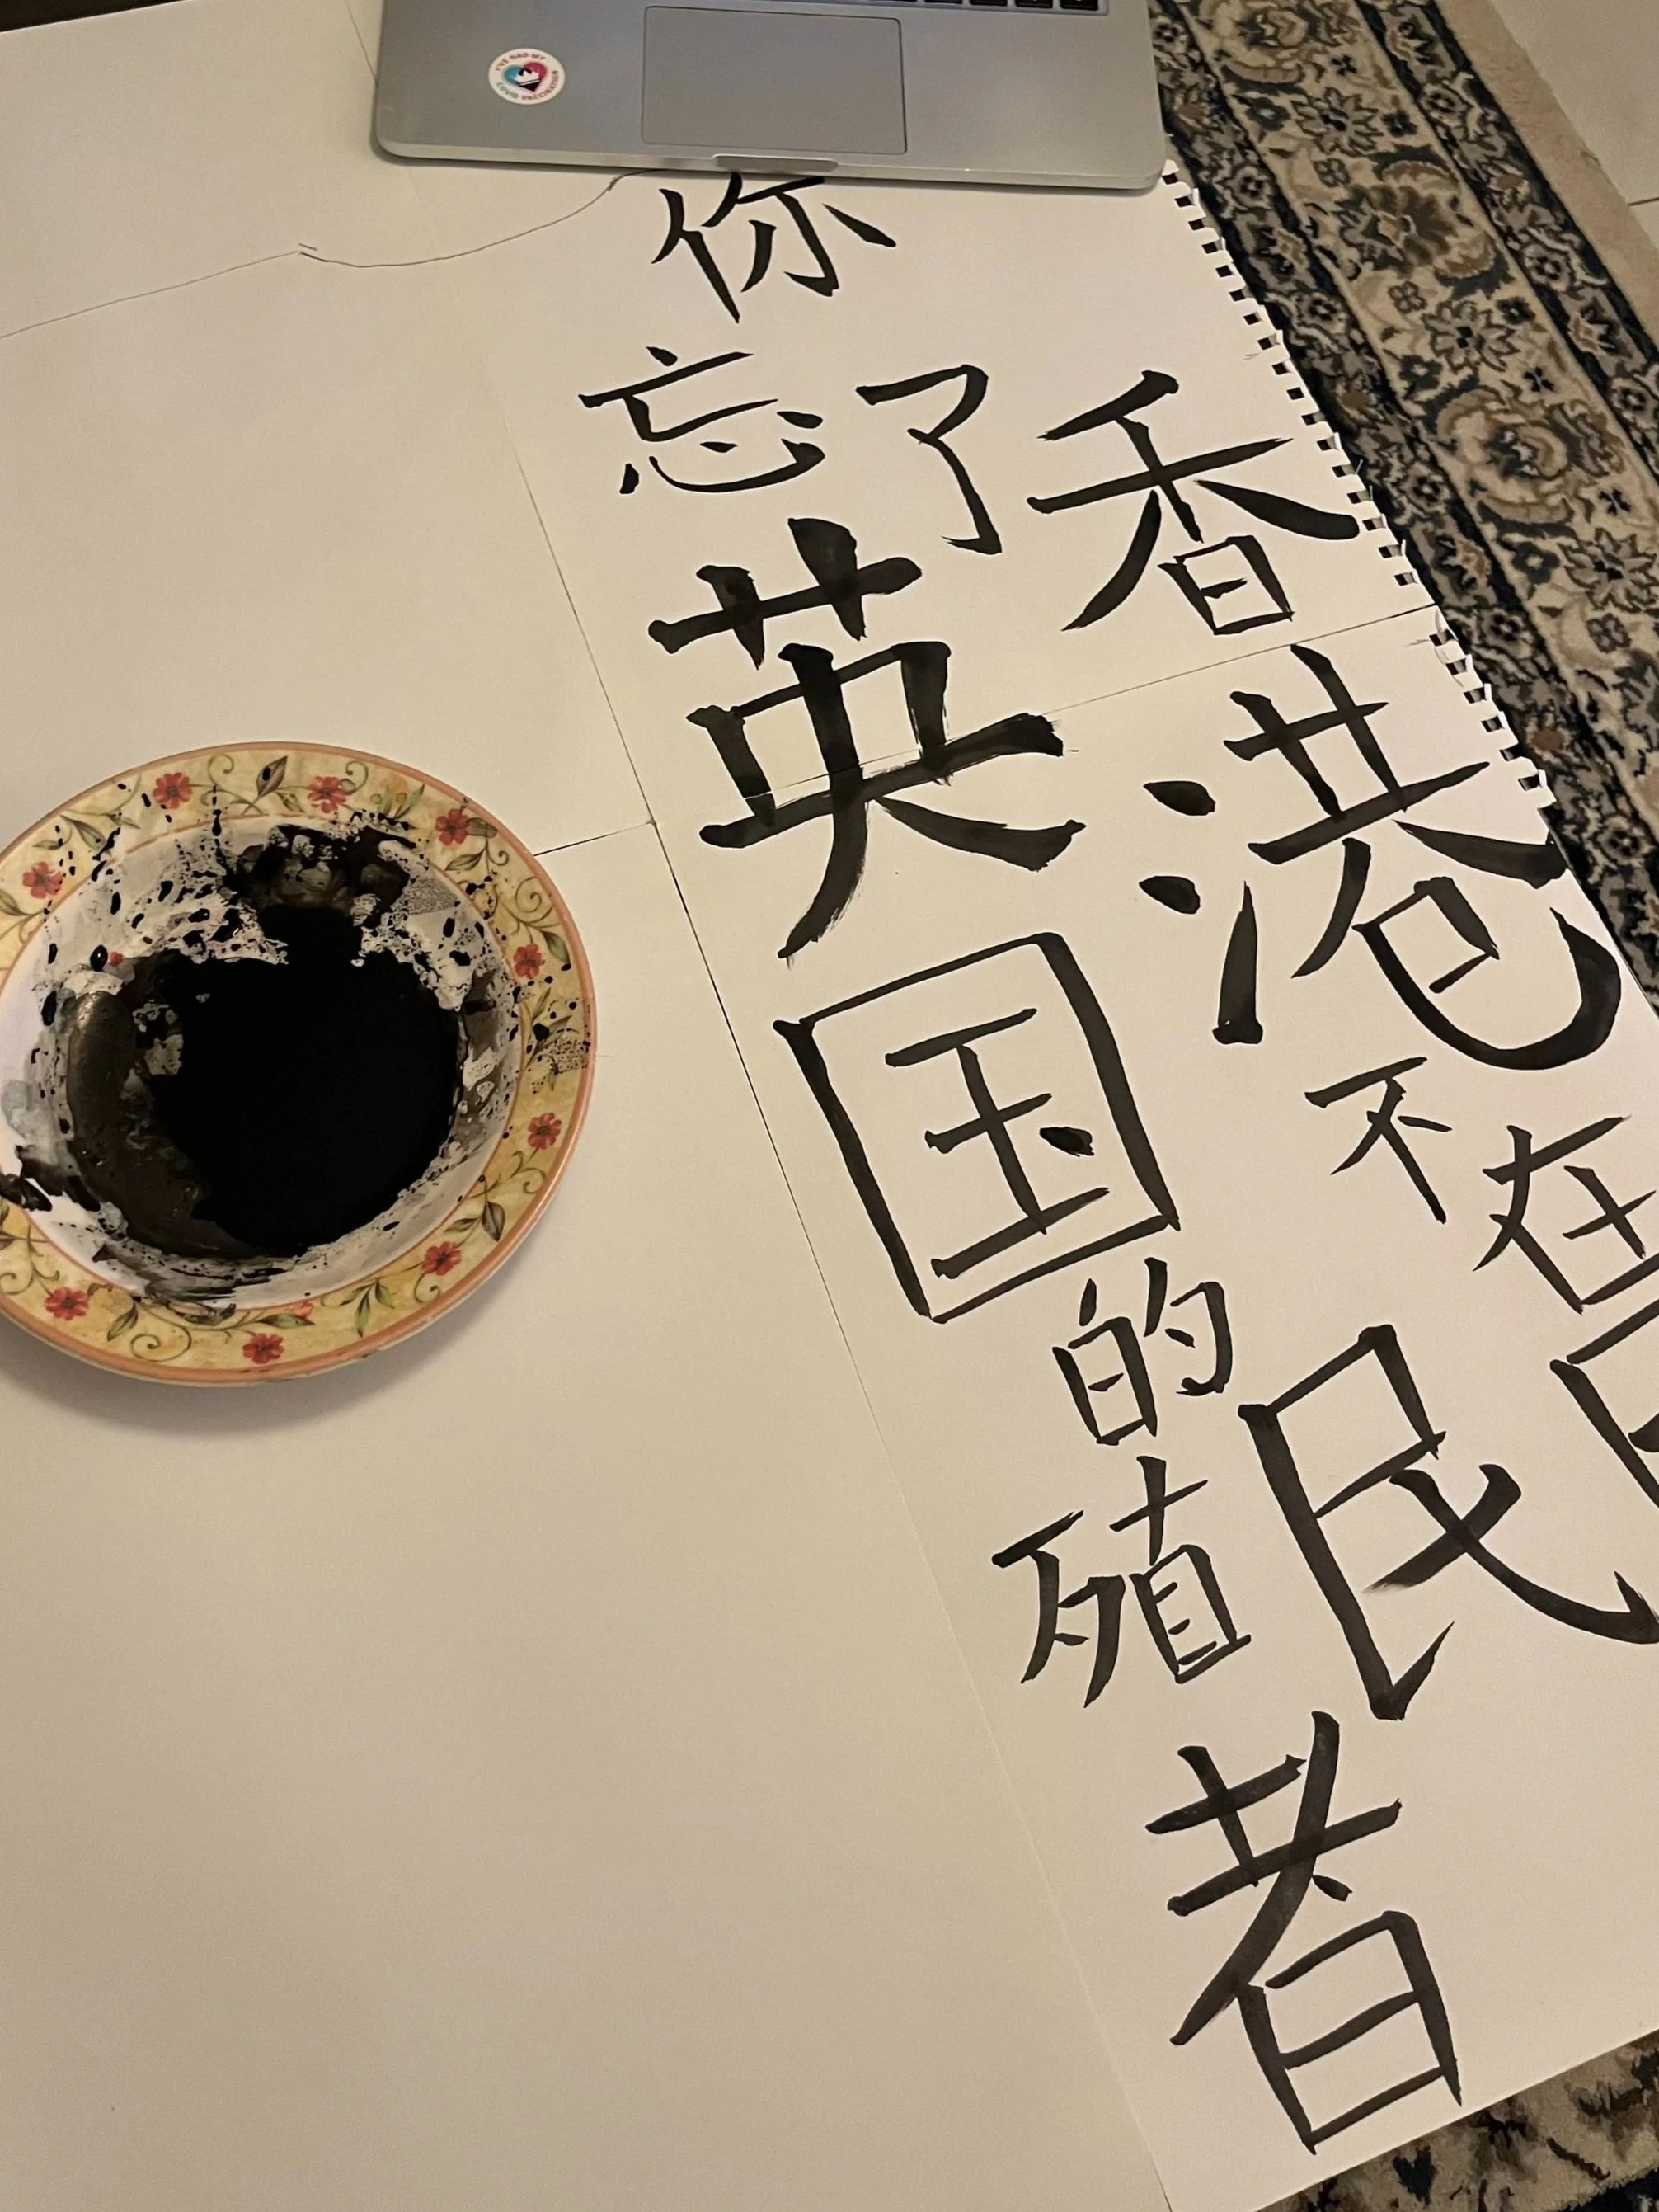 I'VE HAD MY
COVID VACCINATION
你
忘了香港不在
英国的殖民者